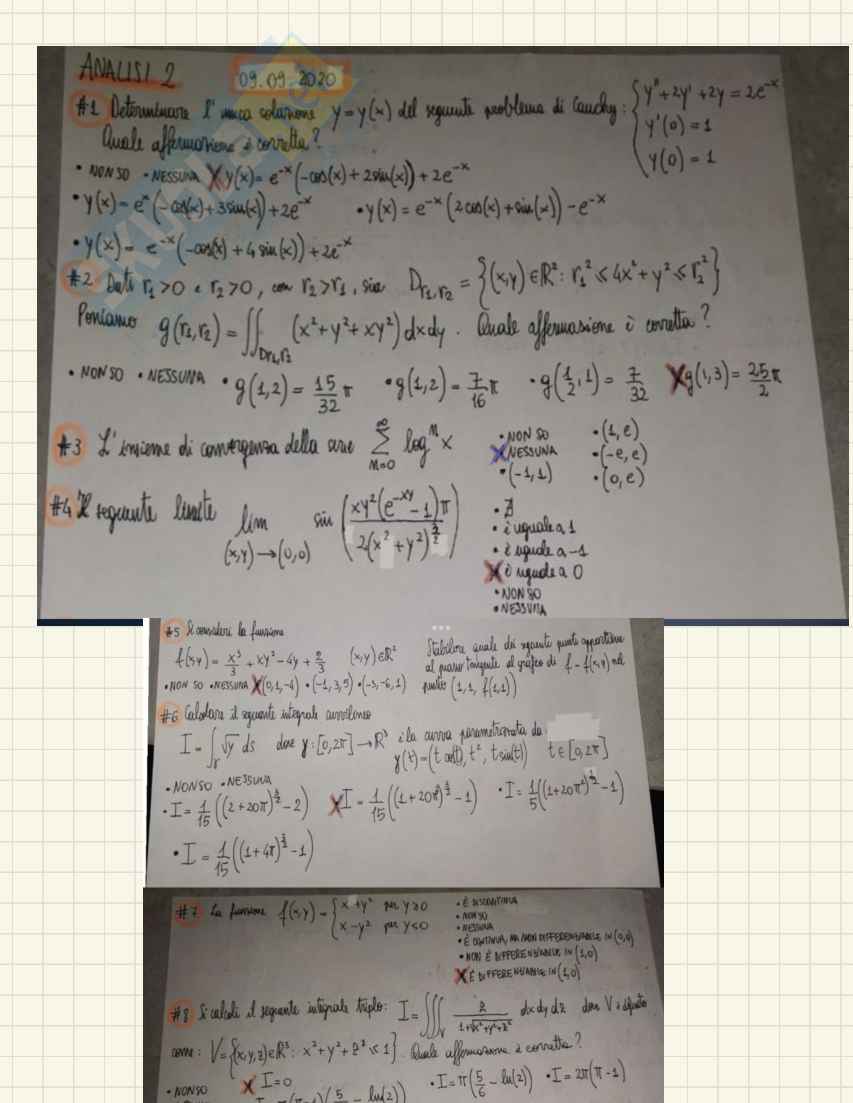 ANALISI 2
09.09.2020
#1 Determinare l'unica soluzione y=y(x) del seguente problema di Cauchy: { y''+2y'+2y=2e^-x
y'(0)=1
y(0)=1
Quale affermazione è corretta?
• NON SO • NESSUNA X y(x)= e^-x(-cos(x)+2sin(x))+2e^-x
• y(x)= e^x(-cos(x)+3sin(x))+2e^-x • y(x)= e^-x(2cos(x)+sin(x))-e^-x
• y(x)= e^-x(-cos(x)+4sin(x))+2e^-x
#2 Dati r₁>0 e r₂>0, con r₂>r₁, sia D_r₁,r₂ = {(x,y)∈ℝ²: r₁² ≤ 4x²+y² ≤ r₂²}
Poniamo g(r₁,r₂) = ∬_Dr₁,r₂ (x²+y²+xy²) dxdy. Quale affermazione è corretta?
• NON SO • NESSUNA • g(1,2)= 15/32 π • g(1,2)= 7/16 π • g(1/2,1)= 7/32 X g(1,3)= 25/2 π
#3 L'insieme di convergenza della serie ∑_{n=0}^∞ log^n x
• NON SO • (1,e)
X NESSUNA • (-e,e)
• (-1,1) • (0,e)
#4 Il seguente limite lim_{(x,y)→(0,0)} sin( xy²(e^-xy -1)π / 2(x²+y²)^{3/2} )
• ∄
• è uguale a 1
• è uguale a -1
X è uguale a 0
• NON SO
• NESSUNA
#5 Si consideri la funzione
f(x,y)= x³/3 + xy² - 4y + 2/3 (x,y)∈ℝ²
Stabilire quale dei seguenti punti appartiene
al piano tangente al grafico di f=f(x,y) nel
punto (1,1,f(1,1))
• NON SO • NESSUNA X (0,1,-4) • (-1,3,5) • (-3,-6,1)
#6 Calcolare il seguente integrale curvilineo
I = ∫_γ √y ds dove γ:[0,2π]→ℝ³ è la curva parametrizzata da
γ(t)=(t cos(t), t², t sin(t)) t∈[0,2π]
• NON SO • NESSUNA
• I= 1/15((2+20π)^{3/2}-2) X I= 1/15((1+20π²)^{3/2}-1) • I= 1/5((1+20π²)^{3/2}-1)
• I= 1/15((1+4π)^{3/2}-1)
#7 La funzione f(x,y)= { x+y² per y≥0
x-y² per y<0
• È DISCONTINUA
• NON SO
• NESSUNA
• È CONTINUA, MA NON DIFFERENZIABILE IN (0,0)
• NON È DIFFERENZIABILE IN (1,0)
X È DIFFERENZIABILE IN (1,0)
#8 Si calcoli il seguente integrale triplo: I=∭_V z/(1+√x²+y²+z²) dxdydz dove V è definito
come: V={(x,y,z)∈ℝ³: x²+y²+z² ≤ 1}. Quale affermazione è corretta?
• NON SO X I=0 • I= π(5/6 - ln(2)) • I= 2π(π-1)